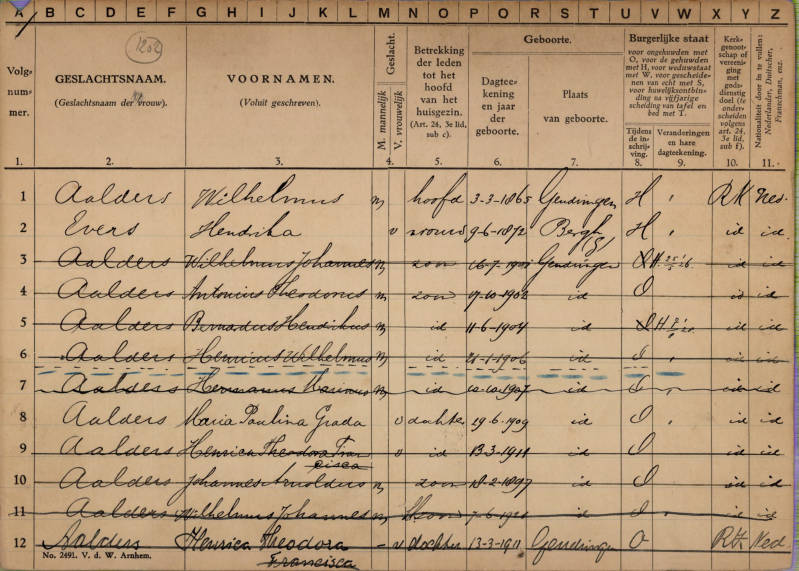 A B C D E F G H I J K L M N O P Q R S T U V W X Y Z
1202
Volgnummer.
GESLACHTSNAAM.
(Geslachtsnaam der vrouw).
VOORNAMEN.
(Voluit geschreven).
Geslacht.
M. mannelijk
V. vrouwelijk
Betrekking
der leden
tot het
hoofd
van het
huisgezin.
(Art. 24, 3e lid,
sub c).
Geboorte.
Dagtee-
kening
en jaar
der
geboorte.
Plaats
van geboorte.
Burgerlijke staat
voor ongehuwden met
O, voor de gehuwden
met H, voor weduwstaat
met W, voor gescheide-
nen van echt met S,
voor huwelijksontbin-
ding na vijfjarige
scheiding van tafel en
bed met T.
Tijdens
de in-
schrij-
ving.
Veranderingen
en hare
dagteekening.
Kerk-
genoot-
schap of
vereeni-
ging
met
gods-
dienstig
doel (te
onder-
scheiden
volgens
art. 24,
3e lid,
sub f).
Nationaliteit door in te vullen:
Nederlander, Duitscher,
Franschman, enz.
1. 2. 3. 4. 5. 6. 7. 8. 9. 10. 11.
1 Aalders Wilhelmus m hoofd 3-3-1865 Gendringen H RK Ned.
2 Evers Hendrika v vrouw 9-6-1872 Bergh (G) H id id
3 Aalders Wilhelmus Johannes m zoon Gendringen O H id id
4 Aalders Antonius Theodorus m zoon 17-10-1902 id O id id
5 Aalders Bernardus Hendrikus m id 11-6-1904 id O H id id
6 Aalders Henricus Wilhelmus m id 21-1-1906 id O id id
7 Aalders Hermanus Marinus m id 10-10-1907 id O id id
8 Aalders Maria Paulina Grada v dochter 19-6-1909 id O id id
9 Aalders Henrica Theodora Francisca v id 13-3-1911 id O id id
10 Aalders Johannes Arnoldus m zoon 18-2-1897 id O id id
11 Aalders Wilhelmus Johannes m zoon id O id id
12 Aalders Henrica Theodora Francisca v dochter 13-3-1911 Gendringen O RK Ned
No. 2491. V. d. W. Arnhem.